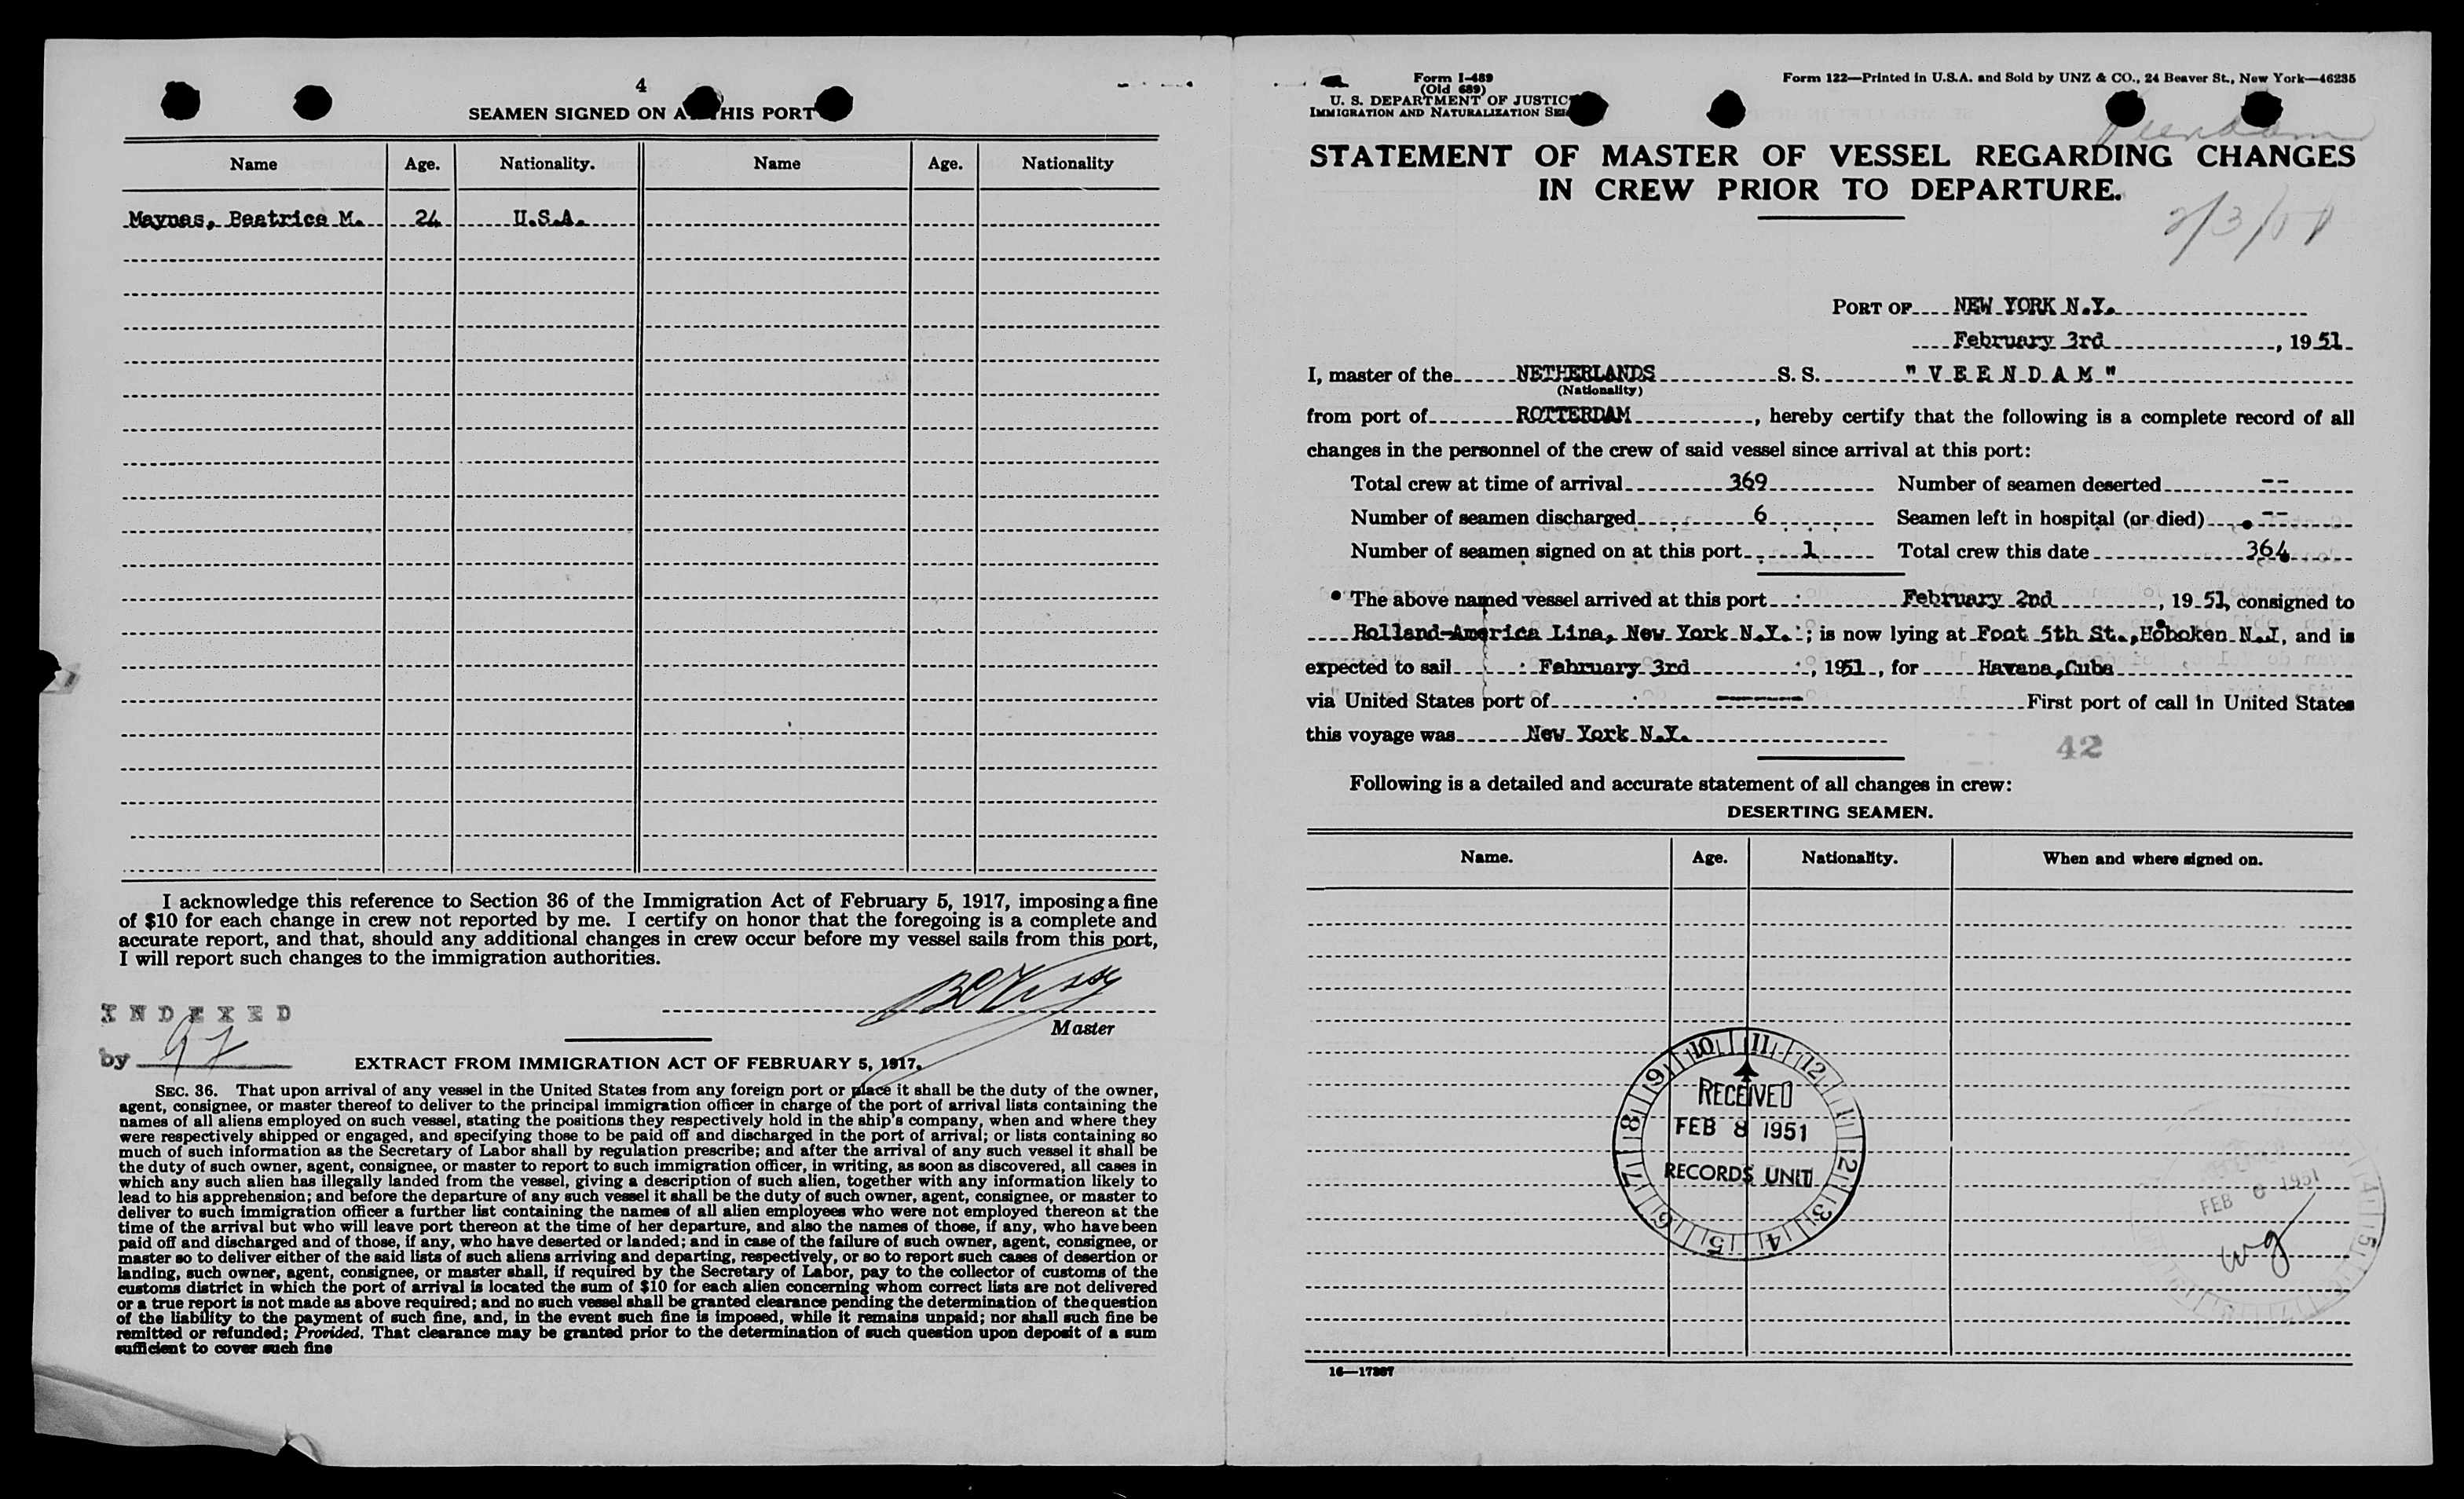 4
SEAMEN SIGNED ON A HIS PORT
Name Age. Nationality. Name Age. Nationality
Maynes, Beatrice M. 24 U.S.A.
I acknowledge this reference to Section 36 of the Immigration Act of February 5, 1917, imposing a fine
of $10 for each change in crew not reported by me. I certify on honor that the foregoing is a complete and
accurate report, and that, should any additional changes in crew occur before my vessel sails from this port,
I will report such changes to the immigration authorities.
INDEXED
Master
by
EXTRACT FROM IMMIGRATION ACT OF FEBRUARY 5, 1917.
SEC. 36. That upon arrival of any vessel in the United States from any foreign port or place it shall be the duty of the owner,
agent, consignee, or master thereof to deliver to the principal immigration officer in charge of the port of arrival lists containing the
names of all aliens employed on such vessel, stating the positions they respectively hold in the ship's company, when and where they
were respectively shipped or engaged, and specifying those to be paid off and discharged in the port of arrival; or lists containing so
much of such information as the Secretary of Labor shall by regulation prescribe; and after the arrival of any such vessel it shall be
the duty of such owner, agent, consignee, or master to report to such immigration officer, in writing, as soon as discovered, all cases in
which any such alien has illegally landed from the vessel, giving a description of such alien, together with any information likely to
lead to his apprehension; and before the departure of any such vessel it shall be the duty of such owner, agent, consignee, or master to
deliver to such immigration officer a further list containing the names of all alien employees who were not employed thereon at the
time of the arrival but who will leave port thereon at the time of her departure, and also the names of those, if any, who have been
paid off and discharged and of those, if any, who have deserted or landed; and in case of the failure of such owner, agent, consignee, or
master so to deliver either of the said lists of such aliens arriving and departing, respectively, or so to report such cases of desertion or
landing, such owner, agent, consignee, or master shall, if required by the Secretary of Labor, pay to the collector of customs of the
customs district in which the port of arrival is located the sum of $10 for each alien concerning whom correct lists are not delivered
or a true report is not made as above required; and no such vessel shall be granted clearance pending the determination of the question
of the liability to the payment of such fine, and, in the event such fine is imposed, while it remains unpaid; nor shall such fine be
remitted or refunded; Provided, That clearance may be granted prior to the determination of such question upon deposit of a sum
sufficient to cover such fine
Form I-489
(Old 689)
U. S. DEPARTMENT OF JUSTIC
IMMIGRATION AND NATURALIZATION SE
Form 122—Printed in U.S.A. and Sold by UNZ & CO., 24 Beaver St., New York—46235
Veendam
STATEMENT OF MASTER OF VESSEL REGARDING CHANGES
IN CREW PRIOR TO DEPARTURE.
2/3/51
PORT OF NEW YORK N.Y.
February 3rd, 1951
I, master of the NETHERLANDS S. S. "VEENDAM"
(Nationality)
from port of ROTTERDAM, hereby certify that the following is a complete record of all
changes in the personnel of the crew of said vessel since arrival at this port:
Total crew at time of arrival 369 Number of seamen deserted --
Number of seamen discharged 6 Seamen left in hospital (or died) --
Number of seamen signed on at this port 1 Total crew this date 364
The above named vessel arrived at this port February 2nd, 1951, consigned to
Holland-America Line, New York N.Y.; is now lying at Foot 5th St., Hoboken N.J, and is
expected to sail February 3rd, 1951, for Havana, Cuba
via United States port of ------ First port of call in United States
this voyage was New York N.Y.
42
Following is a detailed and accurate statement of all changes in crew:
DESERTING SEAMEN.
Name. Age. Nationality. When and where signed on.
10 11 12 1 2 3 4 5 6 7 8 9
RECEIVED
FEB 8 1951
RECORDS UNIT
FEB 1951
16—17397